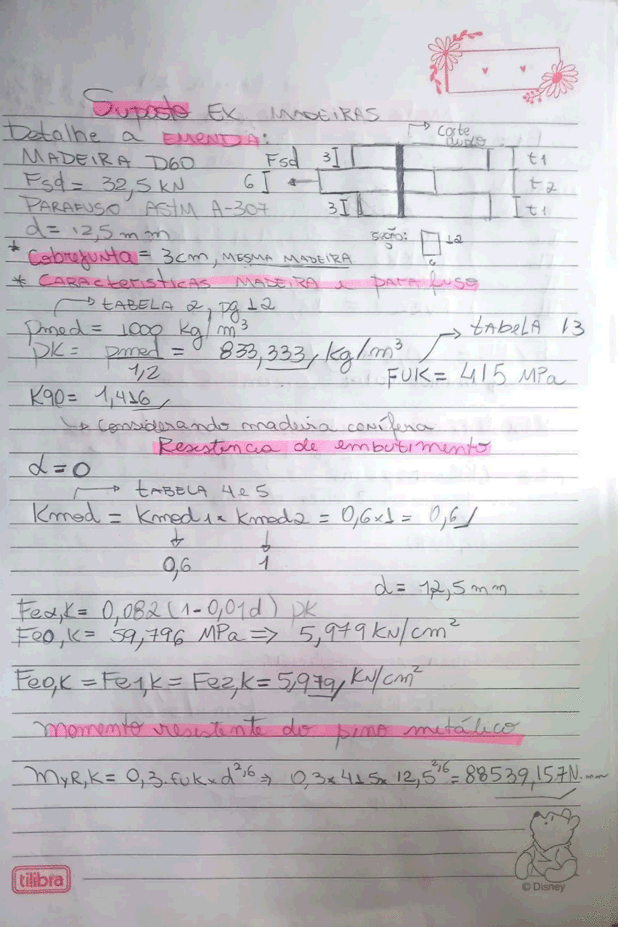 Suposto EX MADEIRAS
Detalhe a EMENDA:
MADEIRA D60
Fsd = 32,5 kN
PARAFUSO ASTM A-307
d = 12,5 mm
Fsd 3 6 3
→ corte duplo
t1
t2
t1
seção: 12
6
* Cobrejunta = 3cm, MESMA MADEIRA
* CARACTERÍSTICAS MADEIRA e parafuso
→ tABELA 2, pg 12
ρmed = 1000 kg/m³
ρK = ρmed/1,2 = 833,333, kg/m³
→ tABELA 13
FUK = 415 MPa
K90 = 1,416
↳ Considerando madeira conífera
Resistência de embutimento
α = 0
→ tABELA 4 e 5
Kmod = Kmod1 × Kmod2 = 0,6 x 1 = 0,6
0,6 1
d = 12,5 mm
Feα,K = 0,082 (1 - 0,01d) ρK
Fe0,K = 59,796 MPa => 5,979 KN/cm²
Fe0,K = Fe1,K = Fe2,K = 5,979, KN/cm²
momento resistente do pino metálico
MyR,K = 0,3 . fuk x d^2,6 => 0,3 x 415 x 12,5^2,6 = 88539,157N.mm
tilibra
© Disney